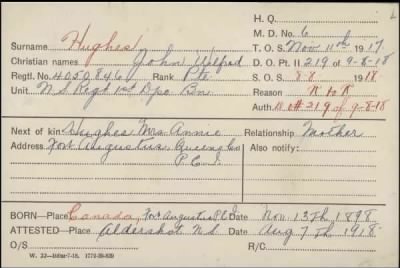 H. Q.
M. D. No. 6
Surname Hughes
T. O. S. Nov 11th 1917
Christian names John Wilfred
D. O. Pt. II 219 of 9-8-18
Regtl. No. 4050846 Rank Pte.
S. O. S. 8-8 1918
Unit N.S. Regt 1st Depo Bn.
Reason
Auth. 219 of 9-8-18
Next of kin Hughes Mrs. Annie Relationship Mother
Address Fort Augustus, Queens Co Also notify:
P.E.I.
BORN—Place Canada, Fort Augustus P.E.I. Date Nov. 13th 1898
ATTESTED—Place Aldershot N.S. Date Aug 7th 1918
O/S R/C